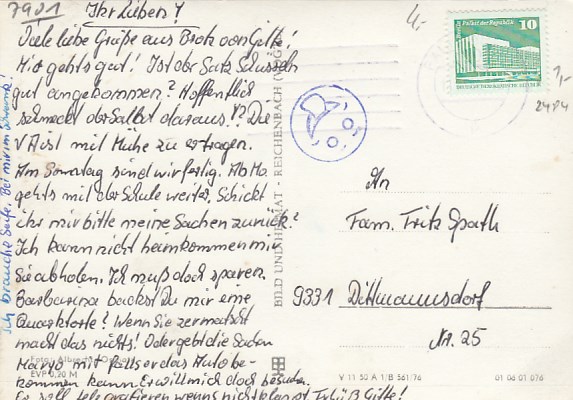 7901
Ihr Lieben!
Viele liebe Grüße aus Brok von Gitte!
Mir gehts gut! Ist der Satz Schüsseln
gut angekommen? Hoffentlich
schmeckt der Sallat daraus!? Die
VA ist mit Mühe zu ertragen.
Am Sonnatag sind wir fertig. Ab Mo.
gehts mit der Schule weiter. Schickt
ihr mir bitte meine Sachen zurück?
Ich kann nicht heimkommen
Sie abholen. Ich muß doch sparen.
Barbarina backst Du mir eine
Quarktorte? Wenn Sie zermatscht
macht das nichts! Oder gebt die Sachen
Maryo mit falls er das Auto be-
kommen kann. Er will mich doch besuchen.
Er soll telegrafieren wenns nicht klappt. Gitte!
Ich brauche Seife. Bei mir im Schrank!
EVP 0,20 M
BILD UND HEIMAT REICHENBACH
4,-
Berlin Palast der Republik
10
DEUTSCHE DEMOKRATISCHE REPUBLIK
1,-
2484
An
Fam. Fritz Späth
9331 Dittmannsdorf
Nr. 25
V 11 50 A 1/B 561/76
01 06 01 076